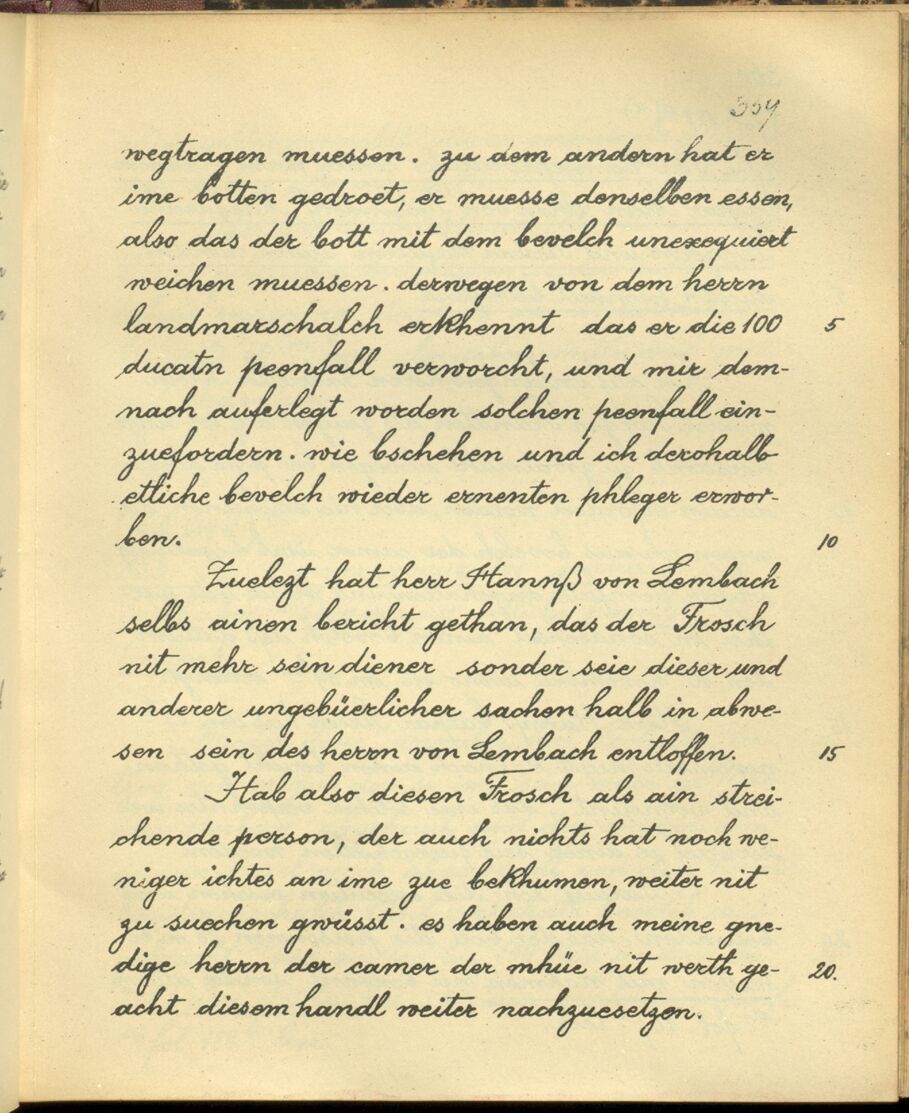 wegtragen muessen. zu dem andern hat er
ime botten gedroet, er muesse denselben essen,
also das der bott mit dem bevelch unexequiert
weichen muessen. derwegen von dem herrn
landmarschalch erkhennt das er die 100 5
ducatn peenfall verworcht, und mir dem-
nach auferlegt worden solchen peenfall ein-
zuefordern. wie bschehen und ich derohalb
etliche bevelch wieder ernenten phleger erwor-
ben. 10
Zuelezt hat herr Hannß von Lembach
selbs ainen bericht gethan, das der Frosch
nit mehr sein diener sonder seie dieser und
anderer ungebüerlicher sachen halb in abwe-
sen sein des herrn von Lembach entloffen. 15
Hab also diesen Frosch als ain strei-
chende person, der auch nichts hat noch we-
niger ichtes an ime zue bekhumen, weiter nit
zu suechen gwüsst. es haben auch meine gne-
dige herrn der camer der mhüe nit werth ge- 20.
acht diesem handl weiter nachzuesetzen.